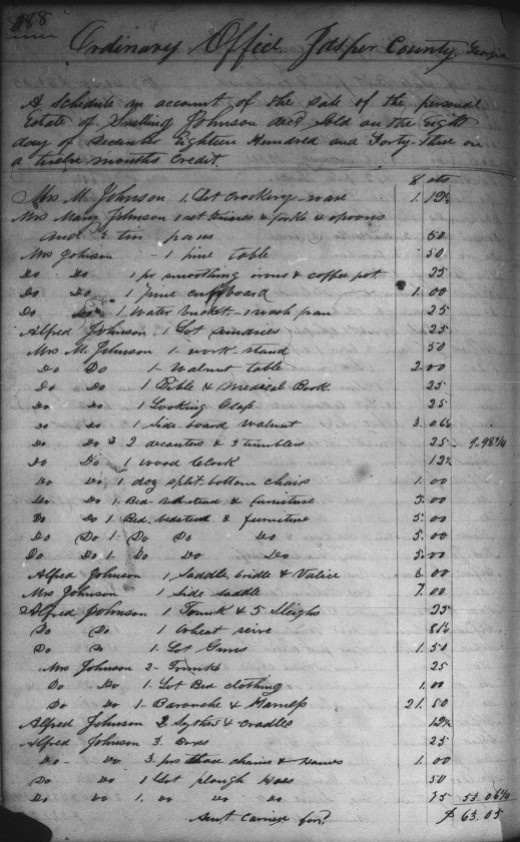 888
Ordinary Office Jasper County. Georgia
A Schedule an account of the sale of the personal
Estate of Snelling Johnson decd Sold on the Eight
day of December Eighteen Hundred and Forty-Three on
a twelve months Credit.
$ cts
Mrs M. Johnson 1 Lot Crockery-ware 1. 12½
Mrs Mary Johnson 1 set knives & forks & spoons
and tin pans 50
Mrs Johnson - 1 pine table 50
Do Do 1 pr smoothing irons & coffee pot 25
Do Do 1 pine cupboard 1.00
Do Do 1 Water bucket - 1 wash pan 25
Alfred Johnson 1 Lot sundries 25
Mrs M. Johnson 1 work stand 50
Do Do 1 Walnut table 2.00
Do Do 1 Bible & Medical Book 25
Do Do 1 Looking Glass 25
Do Do 1 Side board walnut 3.06¼
Do Do 2 decanters & 3 tumblers 25 - 9.98¼
Do Do 1 wood Clock 12½
Do Do 1 doz split bottom chairs 1.00
Do Do 1 Bed bedstead & furniture 5.00
Do Do 1 Bed bedstead & furniture 5.00
Do Do 1 Do Do Do 5.00
Do Do 1 Do Do Do 5.00
Alfred Johnson 1 Saddle bridle & Valice 6.00
Mrs Johnson 1 Side saddle 7.00
Alfred Johnson 1 Trunk & 5 25
Do Do 1 wheat seive 81¼
Do Do 1 Lot 1.50
Mrs Johnson 2 Trunks 25
Do Do 1 Lot Bed clothing 1.00
Do Do 1 Barouche & Harness 21.50
Alfred Johnson 2 Sythes & cradles 12½
Alfred Johnson 3 25
Do Do 3 prs chains & hames 1.00
Do Do 1 Lot plough Hoes 50
Do Do 1. Do Do Do 75 53.06¼
Amt Carried for.d $63.05